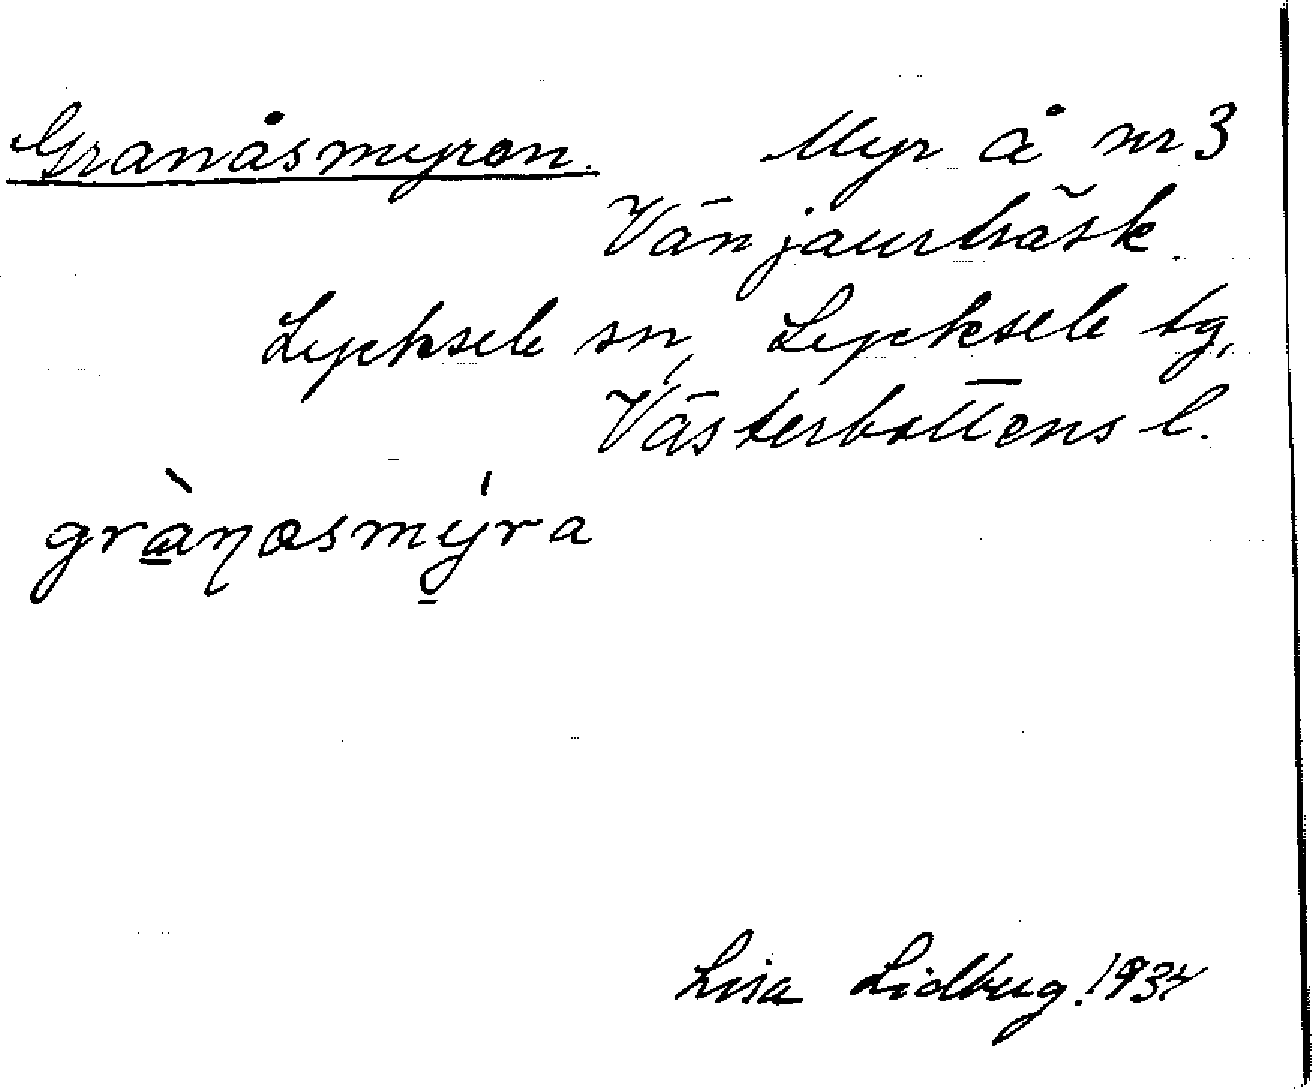 Granåsmyren. Myr å nr 3
Vänjaurträsk.
Lycksele sn, Lycksele tg,
Västerbottens l.
grànåsmýra
Lisa Lidberg. 1934